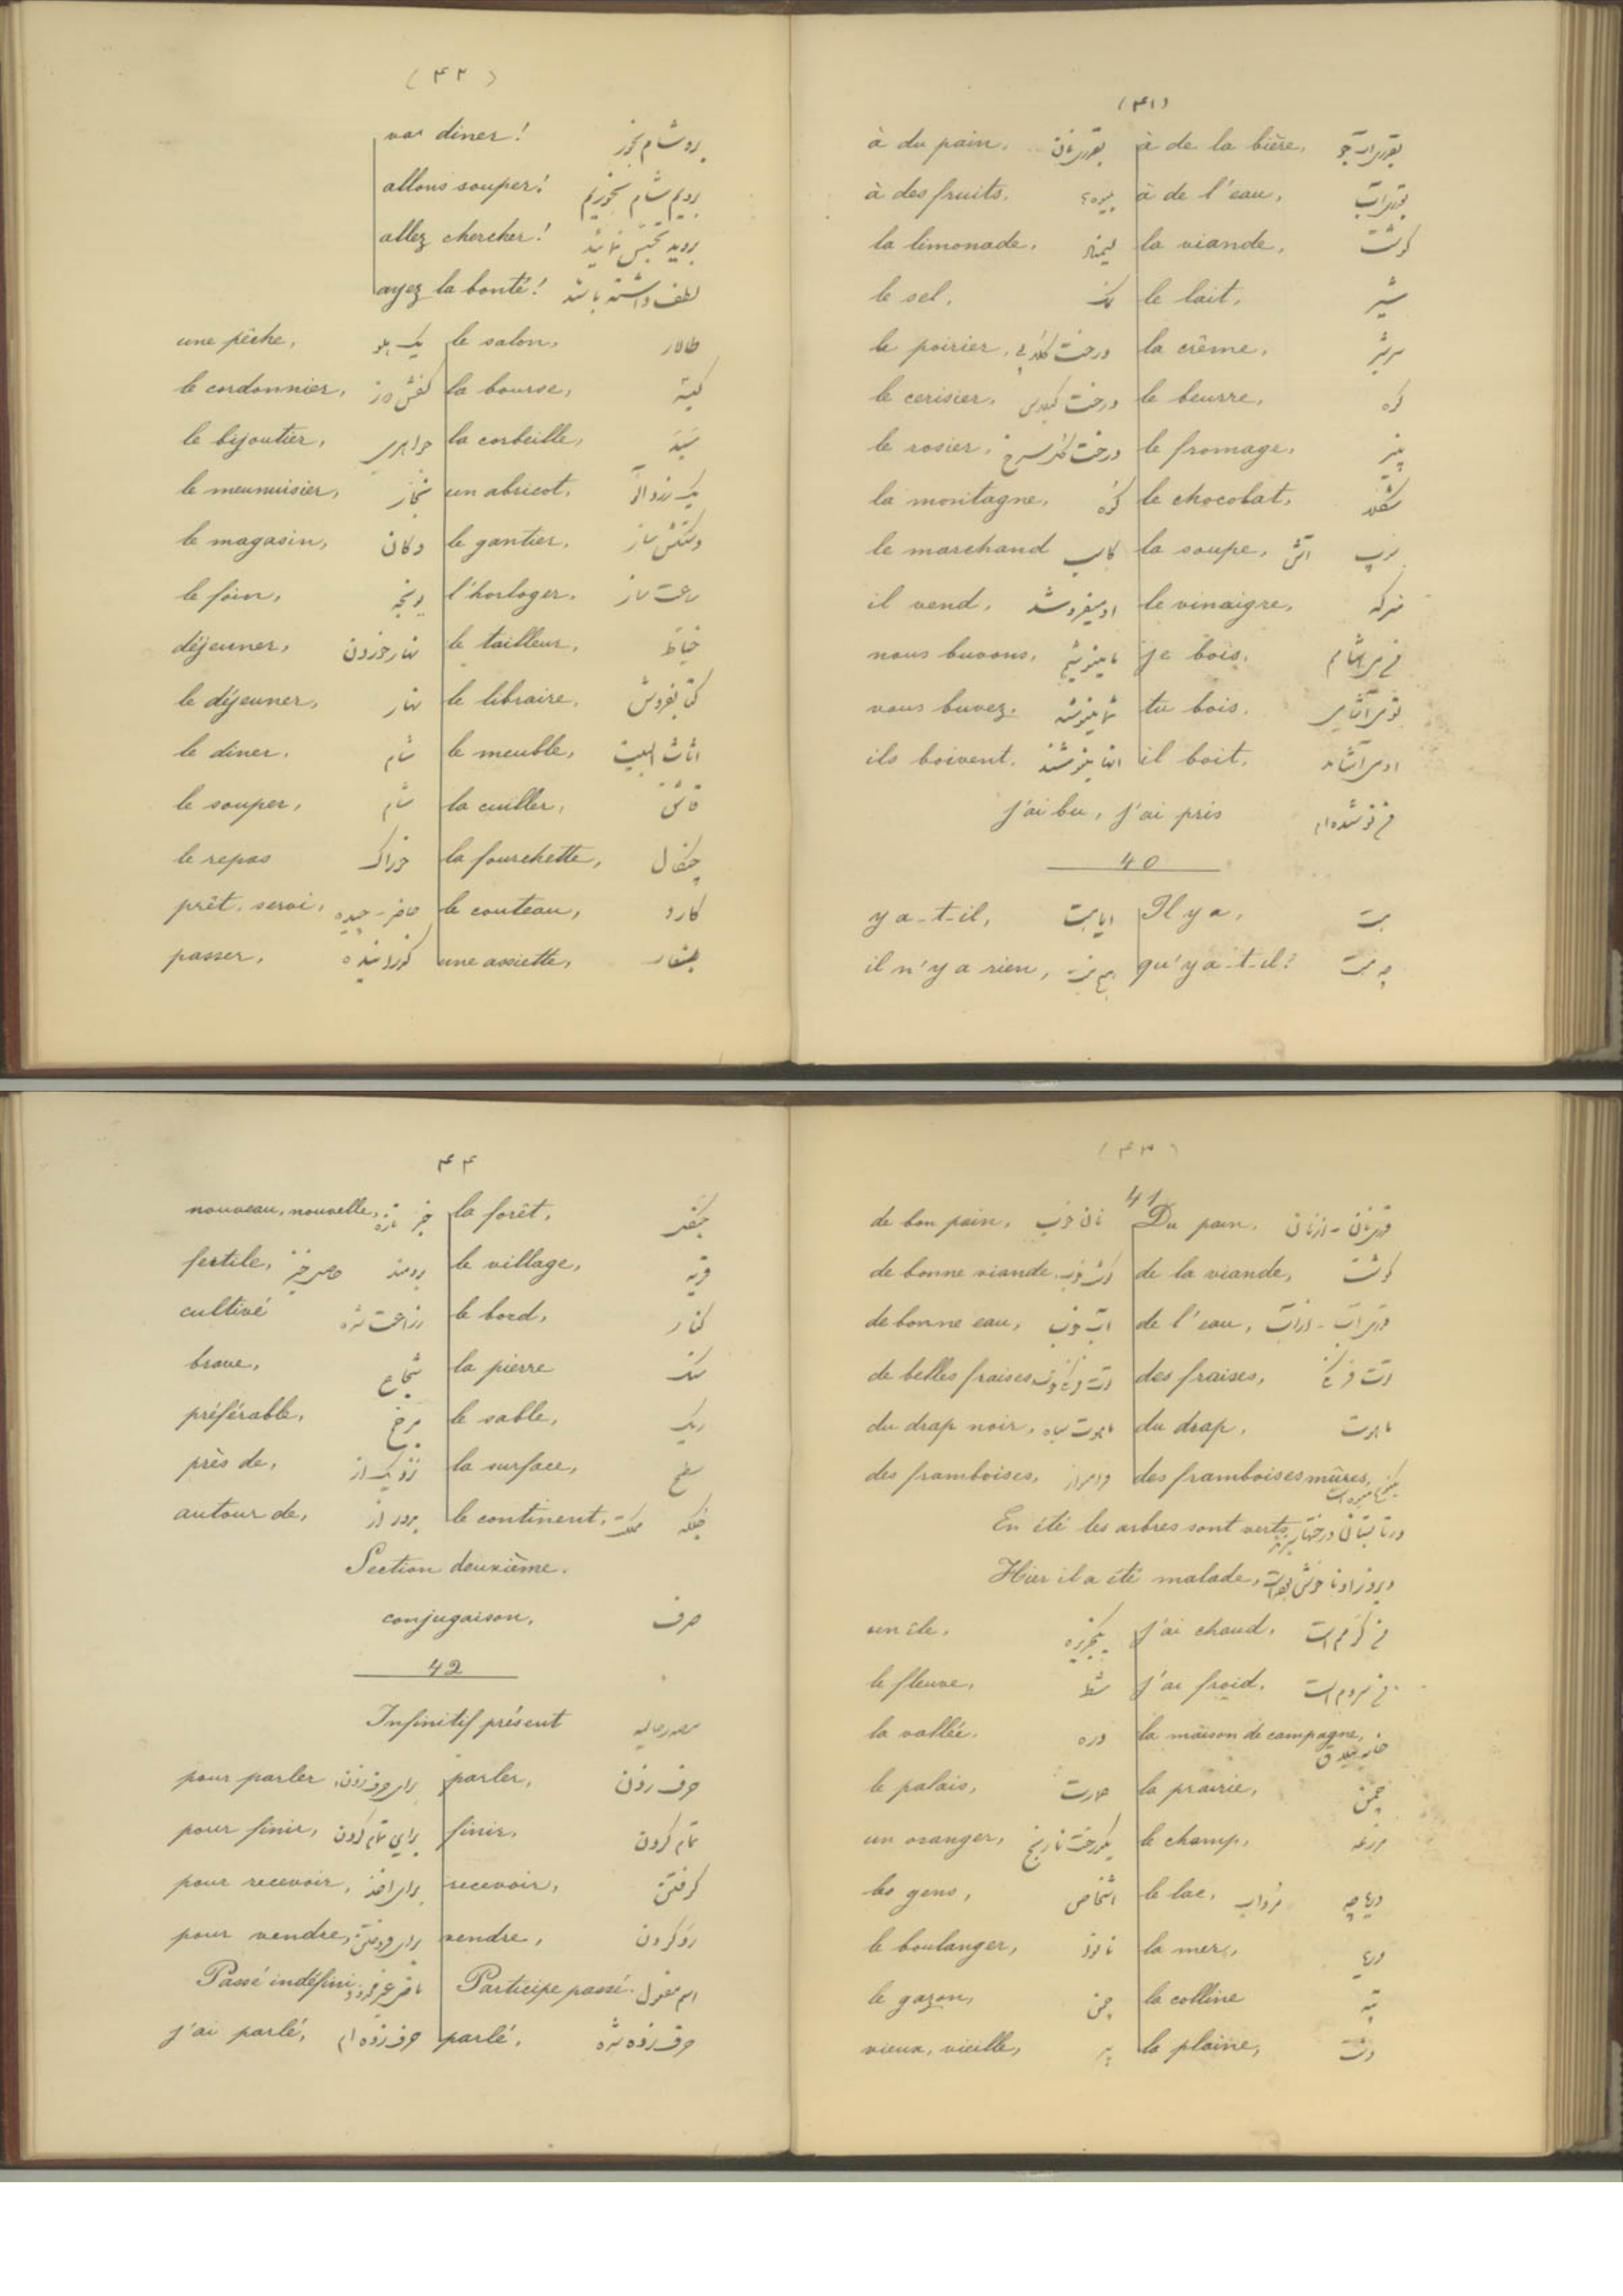 (۴۱)
à du pain, بقدری نان à de la bière, بقدری آب جو
à des fruits. à de l'eau, بقدری آب
la limonade, لیمناد la viande, گوشت
le sel, نمک le lait, شیر
le poirier, درخت گلابی la crême, سرشیر
le cerisier, درخت گیلاس le beurre, کره
le rosier, درخت گل سرخ le fromage, پنیر
la montagne, کوه le chocolat,
le marchand کاسب la soupe, آش سوپ
il vend, او میفروشد le vinaigre, سرکه
nous buvons, ما مینوشیم je bois,
vous buvez. شما مینوشید tu bois.
ils boivent. آنها مینوشند il boit,
j'ai bu, j'ai pris من نوشیده‌ام
40
y a-t-il, Il y a,
il n'y a rien, qu'y a-t-il?
(۴۲)
vas diner! برو شام بخور
allons souper! برویم شام بخوریم
allez chercher! بروید تجسس نمائید
ayez la bonté! لطف داشته باشید
une pêche, یک هلو le salon, طالار
le cordonnier, la bourse, کیسه
le bijoutier, جواهری la corbeille, سبد
le meunuisier, نجار un abricot, یک زردآلو
le magasin, دکان le gantier, دستکش ساز
le foin, یونجه l'horloger, ساعت ساز
déjeuner, نهار خوردن le tailleur, خیاط
le déjeuner, نهار le libraire, کتابفروش
le diner. شام le meuble, اثاث البیت
le souper, شام la cuiller, قاشق
le repas خوراک la fourchette, چنگال
prêt, servi, حاضر - چیده le couteau, کارد
passer, une assiette, بشقاب
(۴۳)
41
de bon pain, نان خوب Du pain, قدری نان - از نان
de bonne viande, گوشت خوب de la viande, گوشت
de bonne eau, آب خوب de l'eau, قدری آب - از آب
de belles fraises, des fraises, توت فرنگی
du drap noir, ماهوت سیاه du drap, ماهوت
des framboises, des framboises mûres,
En été les arbres sont verts, در تابستان درختها سبزند
Hier il a été malade, دیروز او ناخوش بوده است
un île, یک جزیره j'ai chaud, من گرمم است
le fleuve, شط j'ai froid. من سردم است
la vallée. دره la maison de campagne, خانه ییلاق
le palais, عمارت la prairie, چمن
un oranger, یکدرخت نارنج le champ, مزرعه
les gens, اشخاص le lac, مرداب دریاچه
le boulanger, نانوا la mer, دریا
le gazon, چمن la colline تپه
vieux, vieille, پیر la plaine, دشت
۴۴
nouveau, nouvelle, la forêt, جنگل
fertile, برومند حاصل خیز le village, قریه
cultivé زراعت شده le bord, کنار
brave, شجاع la pierre سنگ
préférable, مرجح le sable, ریگ
près de, نزدیک از la surface, سطح
autour de, بدور از le continent,
Section deuxième.
conjugaison, صرف
42
Infinitif présent مصدر حالیه
pour parler برای حرف زدن parler, حرف زدن
pour finir, برای تمام کردن finir, تمام کردن
pour recevoir, برای اخذ recevoir, گرفتن
pour vendre, برای فروختن vendre,
Passé indéfini Participe passé. اسم مفعول
j'ai parlé, حرف زده‌ام parlé, حرف زده شده